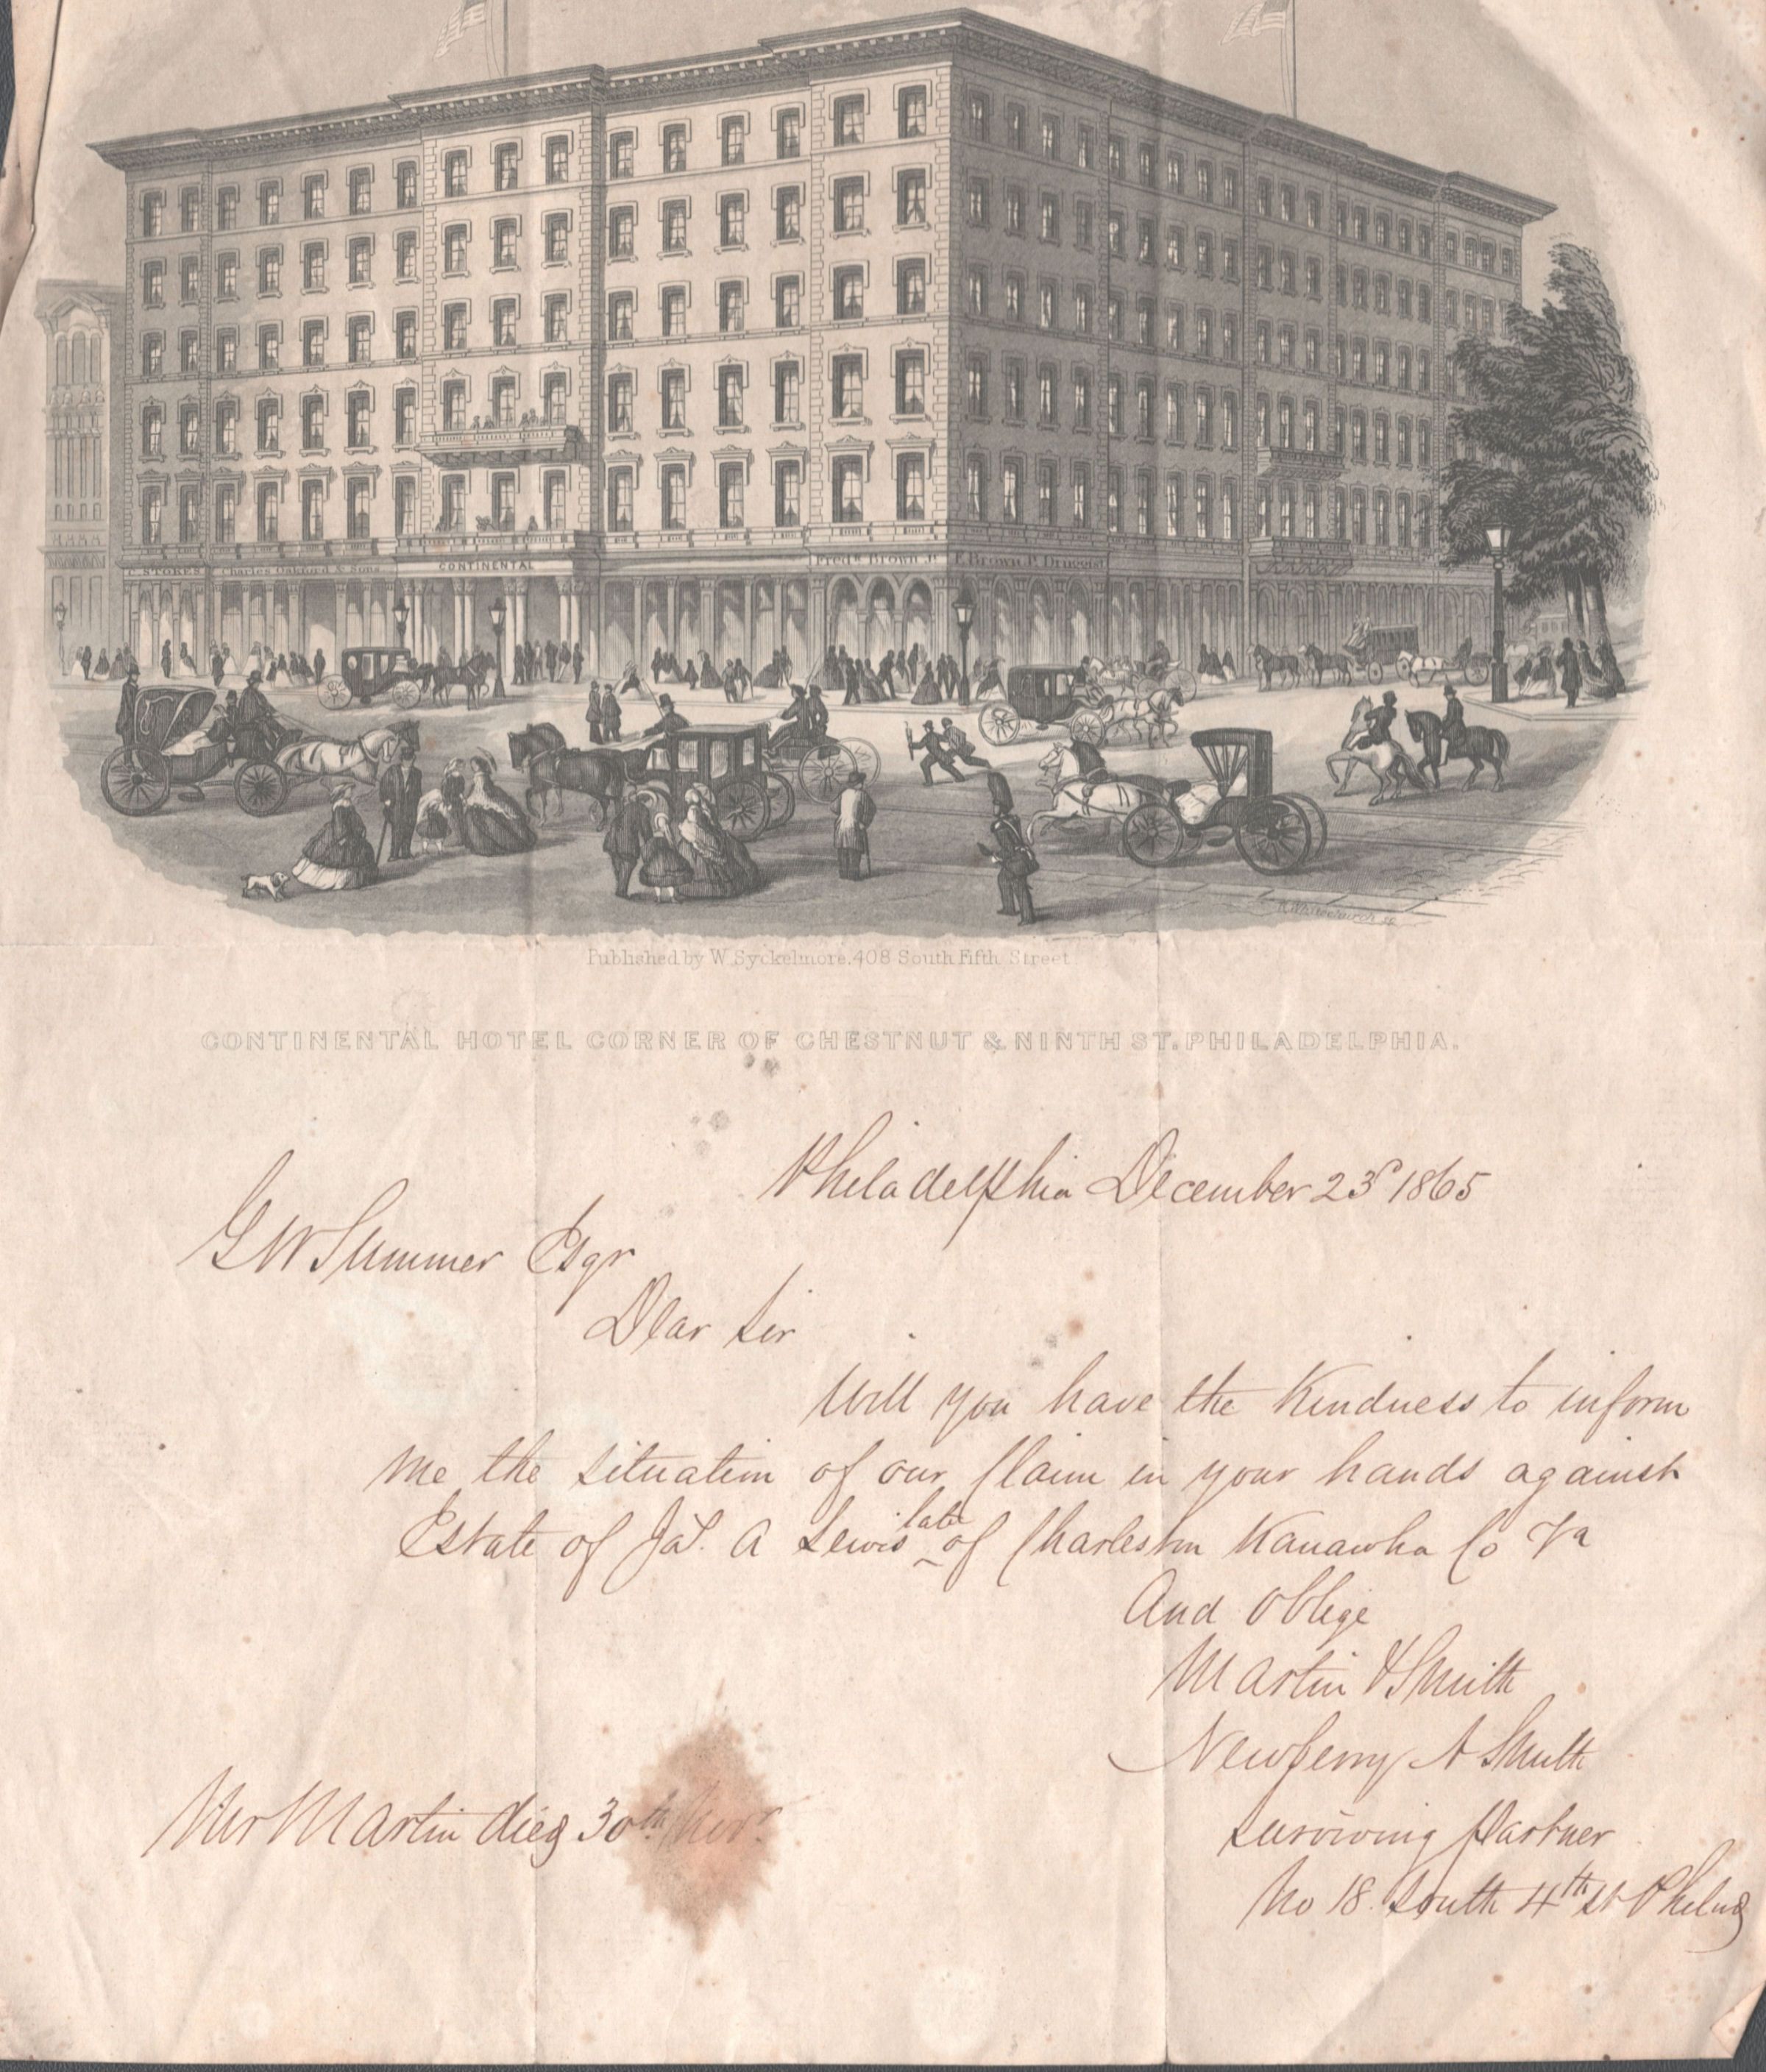 E. STOKES
Charles Oakford & Sons
CONTINENTAL
Fred.k Brown Jr
F. Brown Jr. Druggist
R. Whitechurch sc.
Published by W. Syckelmore, 408 South Fifth Street
CONTINENTAL HOTEL CORNER OF CHESTNUT & NINTH ST. PHILADELPHIA.
Philadelphia December 23d 1865
G W Summer Esqr
Dear Sir
Will you have the Kindness to inform
me the situation of our Claim in your hands against
Estate of Jas. A Lewis late of Charleston Kanawha Co Va
And Oblige
Martin & Smith
Newberry A Smith
surviving Partner
Mr Martin died 30th Nov.
No 18 South 4th St Philad